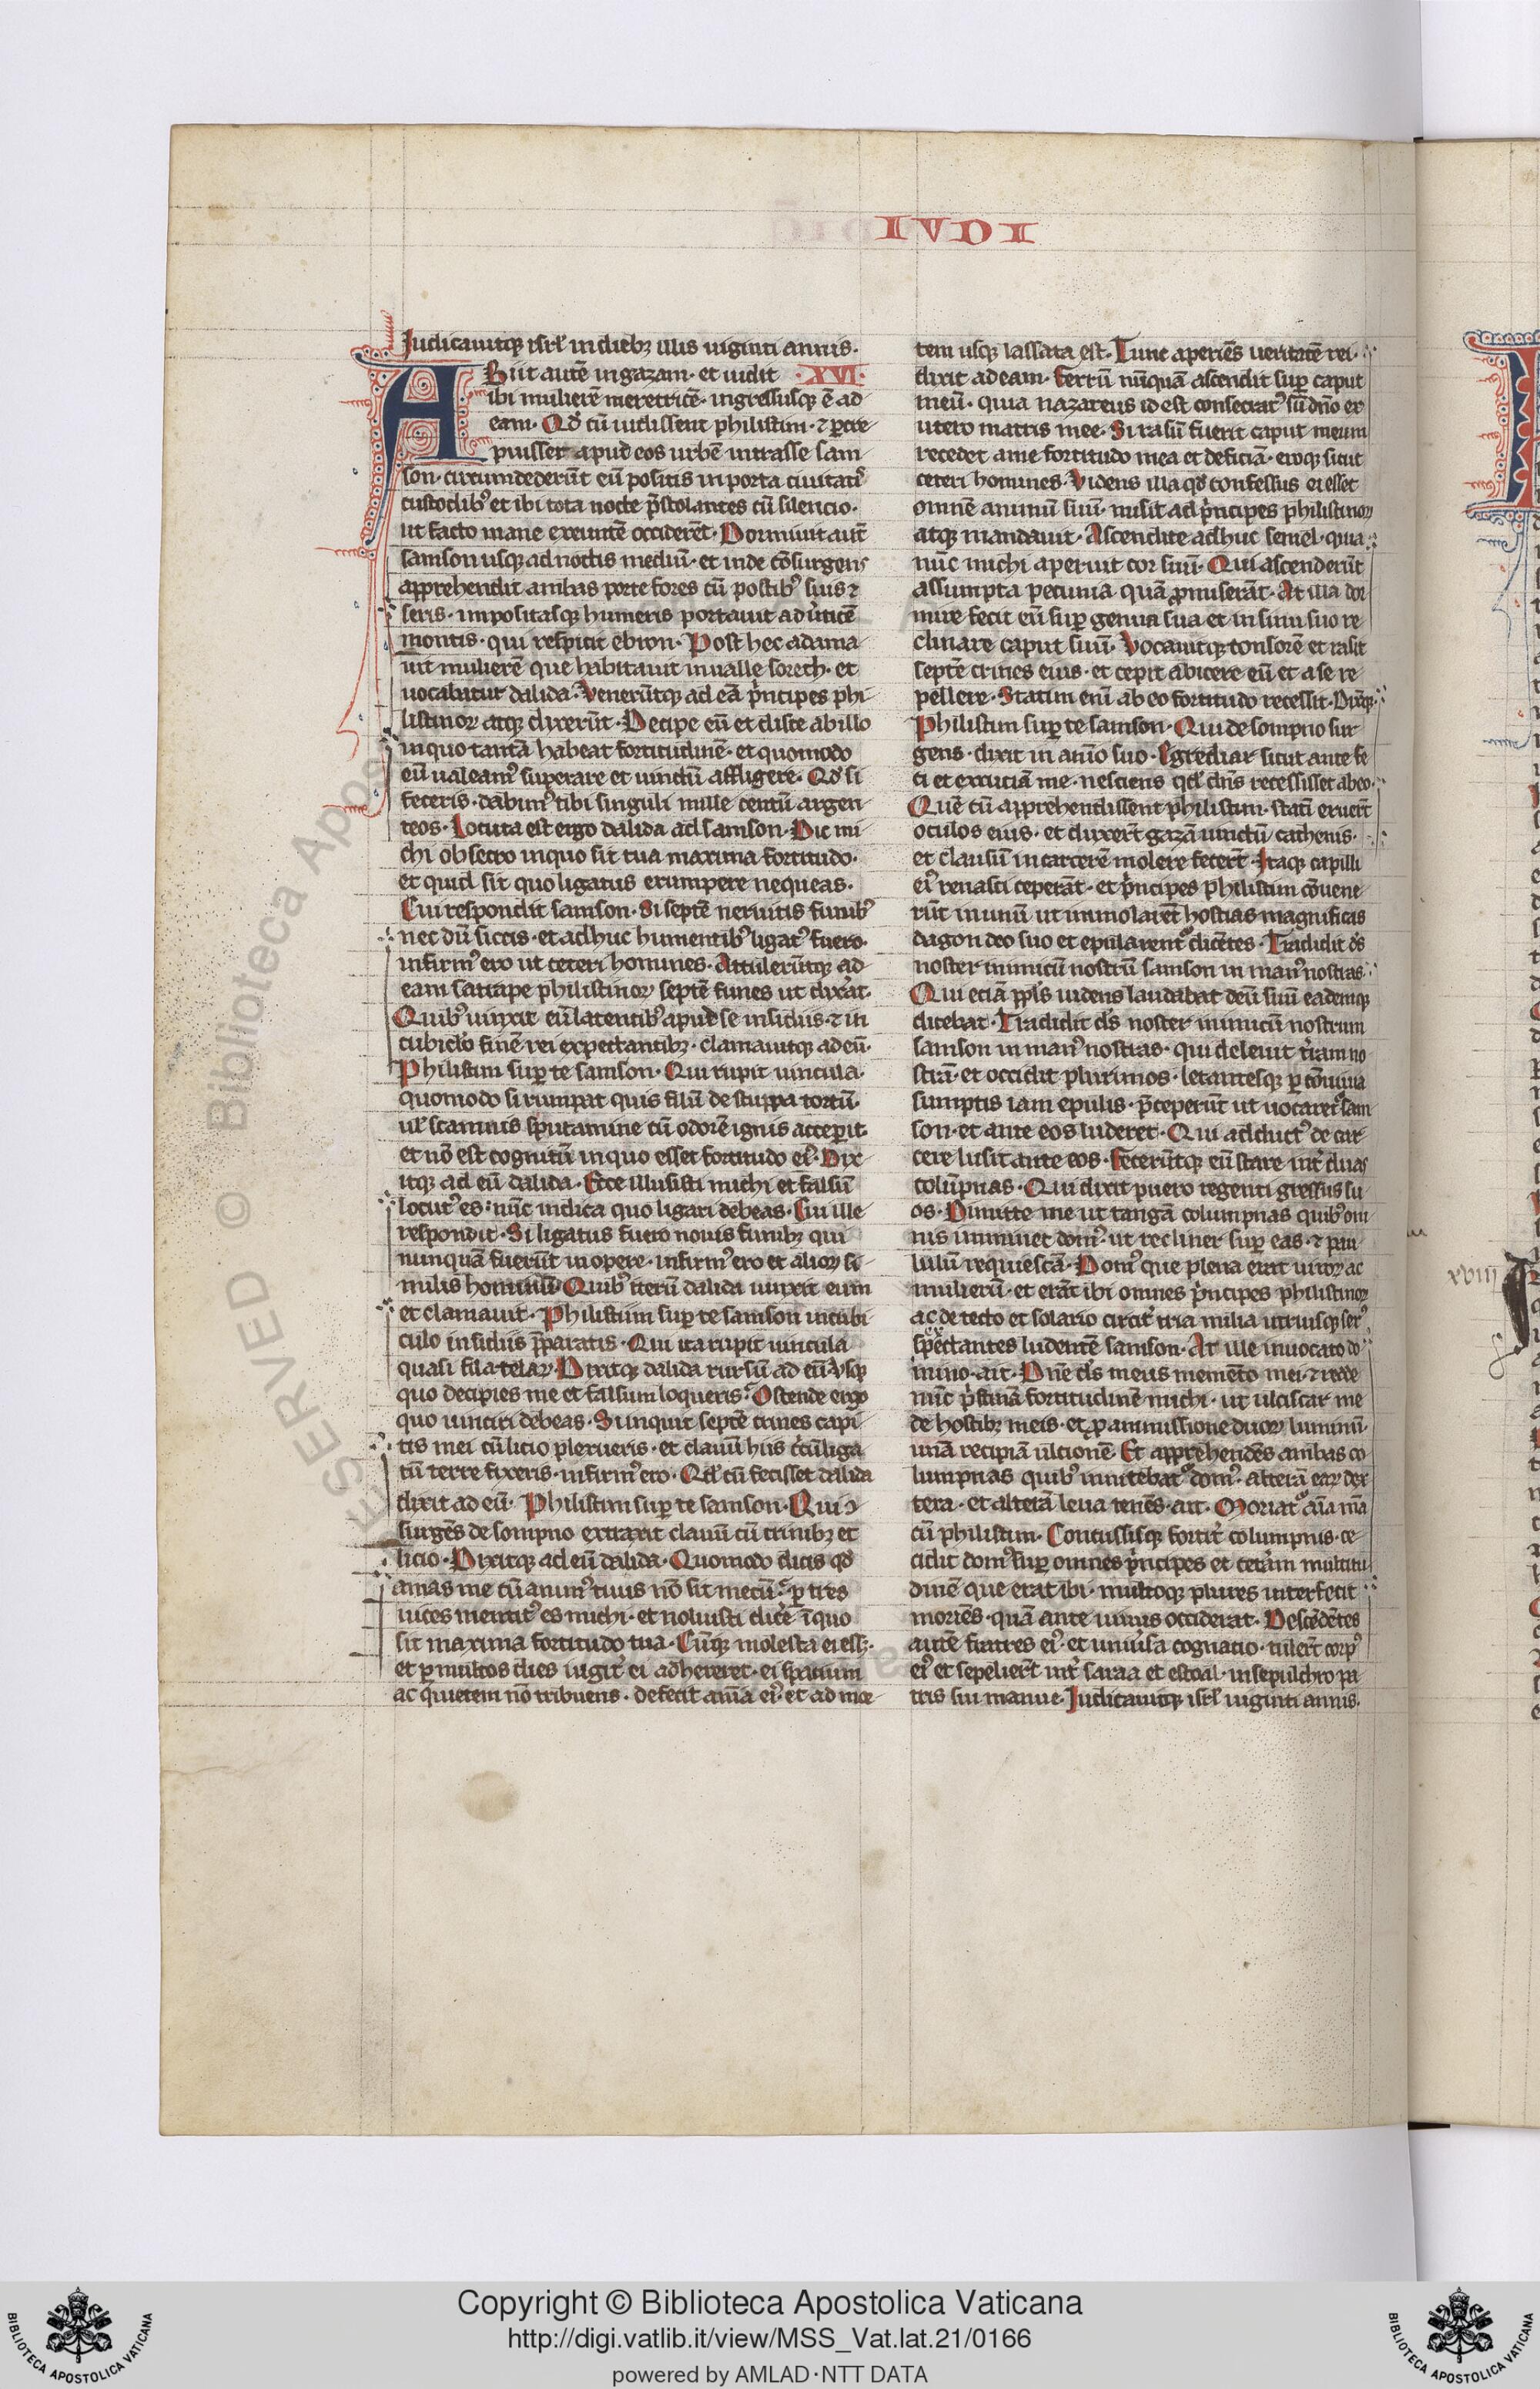 IVDI
Iudicauitq; isrł in dieb; illis uiginti annis.
Abiit autē in gazam. et uidit XVI.
ibi mulierē meretricē. ingressusq; ē ad
eam. Qd̛ cū uidissent philistim. ⁊ p̱cre
puisset apud eos urbē intrasse sam
son. circumdederūt eū positis in porta ciuitatꝭ
custodib⁹ et ibi tota nocte p̄stolantes cū silencio.
ut facto mane exeuntē occiderēt. Dormiuit aut̄
samson usq; ad noctis mediū. et inde cōsurgens
apprehendit ambas porte fores cū postib⁹ suis ⁊
seris. impositasq; humeris portauit ad uͥticē
montis. qui respicit ebron. Post hec adama
uit mulierē que habitauit in ualle sorech. et
uocabatur dalida. Venerūtq; ad eā pͥncipes phi
listinoꝝ atq; dixerūt. Decipe eū et disce ab illo
in quo tantā habeat fortitudinē. et quomodo
eū ualeam⁹ superare et uinctū affligere. Qd̛ si
feceris. dabim⁹ tibi singuli mille centū argen
teos. Locuta est ergo dalida ad samson. Dic mi
chi obsecro in quo sit tua maxima fortitudo.
et quid sit quo ligatus erumpere nequeas.
Cui respondit samson. Si septē neruitis funib⁹
nec dū siccis. et adhuc humentib⁹ ligat⁹ fuero.
infirm⁹ ero ut ceteri homines. Attulerūtq; ad
eam satrape philistinoꝝ septē funes ut dixͣat.
Quib⁹ uinxit eū latentib⁹ apud se insidiis. ⁊ in
cubiclo finē rei expectantib;. clamauitq; ad eū.
Philistim suꝑ te samson. Qui rupit uincula.
quomodo si rumpat quis filū de stuppa tortū.
ul̛ scaminis sputamine cū odorē ignis acceperit.
et nō est cognitū in quo esset fortitudo ei⁹. Dix
itq; ad eū dalida. Ecce illusisti michi et falsū
locut⁹ es. nūc indica quo ligari debeas. Cui ille
respondit. Si ligatus fuero nouis funib; qui
nunquā fuerūt in opere. infirm⁹ ero et alioꝝ si
milis hominū. Quib⁹ iterū dalida uinxit eum
et clamauit. Philistim suꝑ te samson in cubi
culo insidiis p̄paratis. Qui ita rupit uincula
quasi fila telaꝝ. Dixitq; dalida rursū ad eū. Vsq;
quo decipies me et falsum loqueris. Ostende ergo
quo uinciri debeas. Si inquit septē crines capi
tis mei cū licio plexueris. et clauū hiis cͥcūliga
tū terre fixeris. infirm⁹ ero. Qd̛ cū fecisset dalida
dixit ad eū. Philistim suꝑ te samson. Qui
surgēs de sompno extraxit clauū cū crinib; et
licio. Dixitq; ad eū dalida. Quomodo dicis qd̛
amas me cū anim⁹ tuus nō sit mecū. ꝑ tres
uices mentit⁹ es michi. et noluisti dicͤe ī quo
sit maxima fortitudo tua. Cūq; molesta ei ess;.
et ꝑ multos dies iugitͥ ei adhereret. ei spacium
ac quietem nō tribuens. defecit aīa ei⁹. et ad mor
tem usq; lassata est. Tunc aperiēs ueritatē rei.
dixit ad eam. Ferrū nūquā ascendit suꝑ caput
meū. quia nazareus id est consecrat⁹ sū dn̄o ex
utero matris mee. Si rasū fuerit caput meum
recedet a me fortitudo mea et deficiā. eroq; sicut
ceteri homines. Videns illa qd̛ confessus ei esset
omnē animū suū. misit ad pͥncipes philistinoꝝ
atq; mandauit. Ascendite adhuc semel. quia
nūc michi aperuit cor suū. Qui ascenderūt
assumpta pecunia quā ꝓmiserāt. At illa dor
mire fecit eū suꝑ genua sua et in sinu suo re
clinare caput suū. Vocauitq; tonsorē et rasit
septē crines eius. et cepit abicere eū et a se re
pellere. Statim enī ab eo fortitudo recessit. Dixitq;.
Philistim suꝑ te samson. Qui de sompno sur
gens. dixit in aīo suo. Egrediar sicut ante fe
ci et excutiā me. nesciens qd̛ dn̄s recessisset ab eo.
Quē cū apprehendissent philistim. statī eruerūt
oculos eius. et duxerūt gazā uinctū cathenis.
et clausū in carcerē molere fecerūt. Itaq; capilli
ei⁹ renasci ceperāt. et pͥncipes philistim cōuene
rūt in unū ut immolarēt hostias magnificas
dagon deo suo et epularent̛ dicētes. Tradidit ds̄
noster inimicū nostrū samson in man⁹ nostras.
Qui eciā ppl̄s uidens laudabat deū suū eademq;
dicebat. Tradidit ds̄ noster inimicū nostrum
samson in man⁹ nostras. qui deleuit tͥram no
strā. et occidit plurimos. letantesq; ꝑ cōuiuia
sumptis iam epulis. p̄ceperūt ut uocaret̛ sam
son. et ante eos luderet. Qui adduct⁹ de car
cere lusit ante eos. Fecerūtq; eū stare intͥ duas
colūpnas. Qui dixit puero regenti gressus su
os. Dimitte me ut tangā columpnas quib⁹ om
nis imminet dom⁹. ut recliner suꝑ eas. ⁊ pau
lulū requiescā. Dom⁹ que plena erat uiroꝝ ac
mulierū. et erāt ibi omnes pͥncipes philistinoꝝ
ac de tecto et solario circitͥ tria milia utriusq; sex⁹
spectantes ludentē samson. At ille inuocato do
mino. ait. Dn̄e ds̄ meus memēto mei. ⁊ redde
nūc pͥstinā fortitudinē michi. ut ulciscar me
de hostib; meis. et ꝓ amissione duoꝝ luminū.
unā recipiā ulcionē. Et apprehendēs ambas co
lumpnas quib⁹ innitebat̛ dom⁹. alterā eaꝝ dex
tera. et alterā leua tenēs. ait. Moriat̛ aīa mā
cū philistim. Concussisq; fortitͥ columpnis. ce
cidit dom⁹ suꝑ omnes pͥncipes et cetam multitu
dinē que erat ibi. multoq; plures interfecit
moriēs. quā ante uiuus occiderat. Descēdētes
autē fratres ei⁹. et uniuͥsa cognatio. tulerūt corp⁹
ei⁹ et sepelierūt intͥ saraa et estoal. in sepulchro pa
tris sui manue. Iudicauitq; isrł uiginti annis.
xviij
RESERVED © Biblioteca Apos
Copyright © Biblioteca Apostolica Vaticana
http://digi.vatlib.it/view/MSS_Vat.lat.21/0166
powered by AMLAD·NTT DATA
BIBLIOTECA APOSTOLICA VATICANA
BIBLIOTECA APOSTOLICA VATICANA